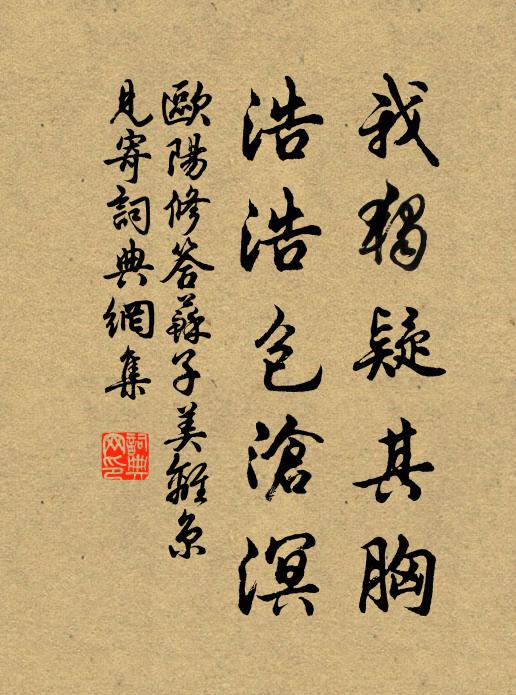 我獨疑其胸
浩浩包滄溟
歐陽修答蘇子美離京
見寄詞典網集
詞典
网印